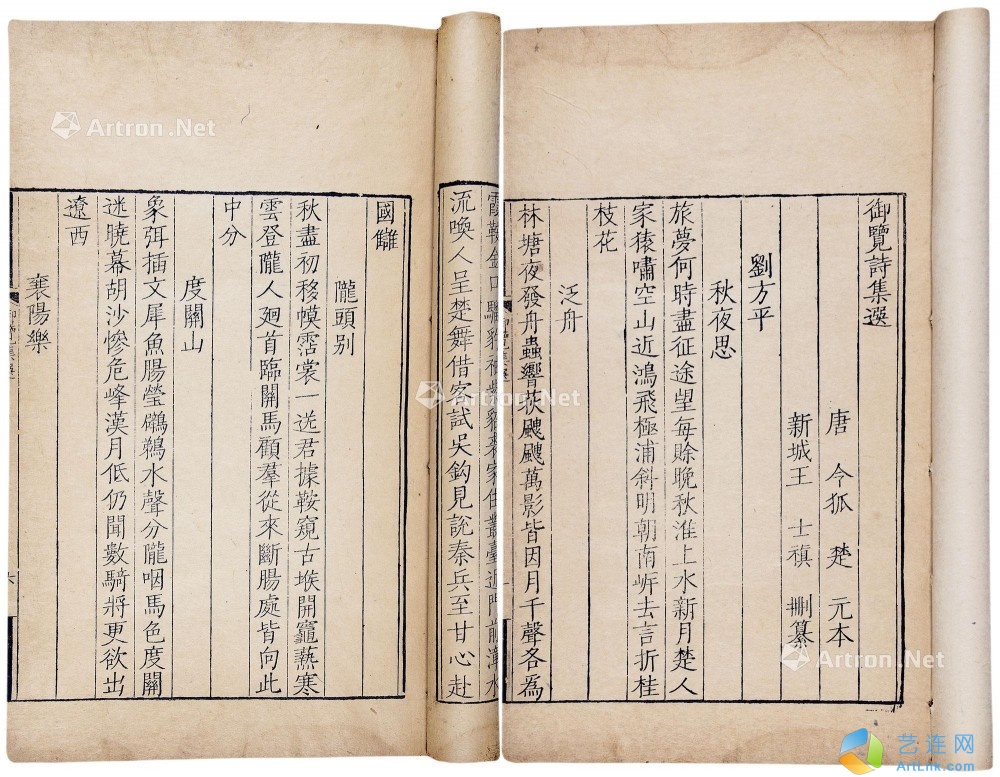 御覽詩集選
唐 令狐 楚 元本
新城王 士禛 刪纂
劉方平
秋夜思
旅夢何時盡征途望每賒晚秋淮上水新月楚人
家猿嘯空山近鴻飛極浦斜明朝南岸去言折桂
枝花
泛舟
林塘夜發舟蟲響荻颼颼萬影皆因月千聲各為
霞鞍金口騮豹袖紫貂裘家住叢臺近門前漳水
流喚人呈楚舞借客試吳鈎見說秦兵至甘心赴
國讎
隴頭别
秋盡初移幙霑裳一送君據鞍窺古堠開竈爇寒
雲登隴人廻首臨關馬顧羣從來斷腸處皆向此
中分
度關山
象弭插文犀魚腸瑩鸊鵜水聲分隴咽馬色度關
迷曉幕胡沙慘危峰漢月低仍聞數騎將更欲出
遼西
襄陽樂
Artron.Net
Artron.Net
Artron.Net
艺连网
ArtLnk.com